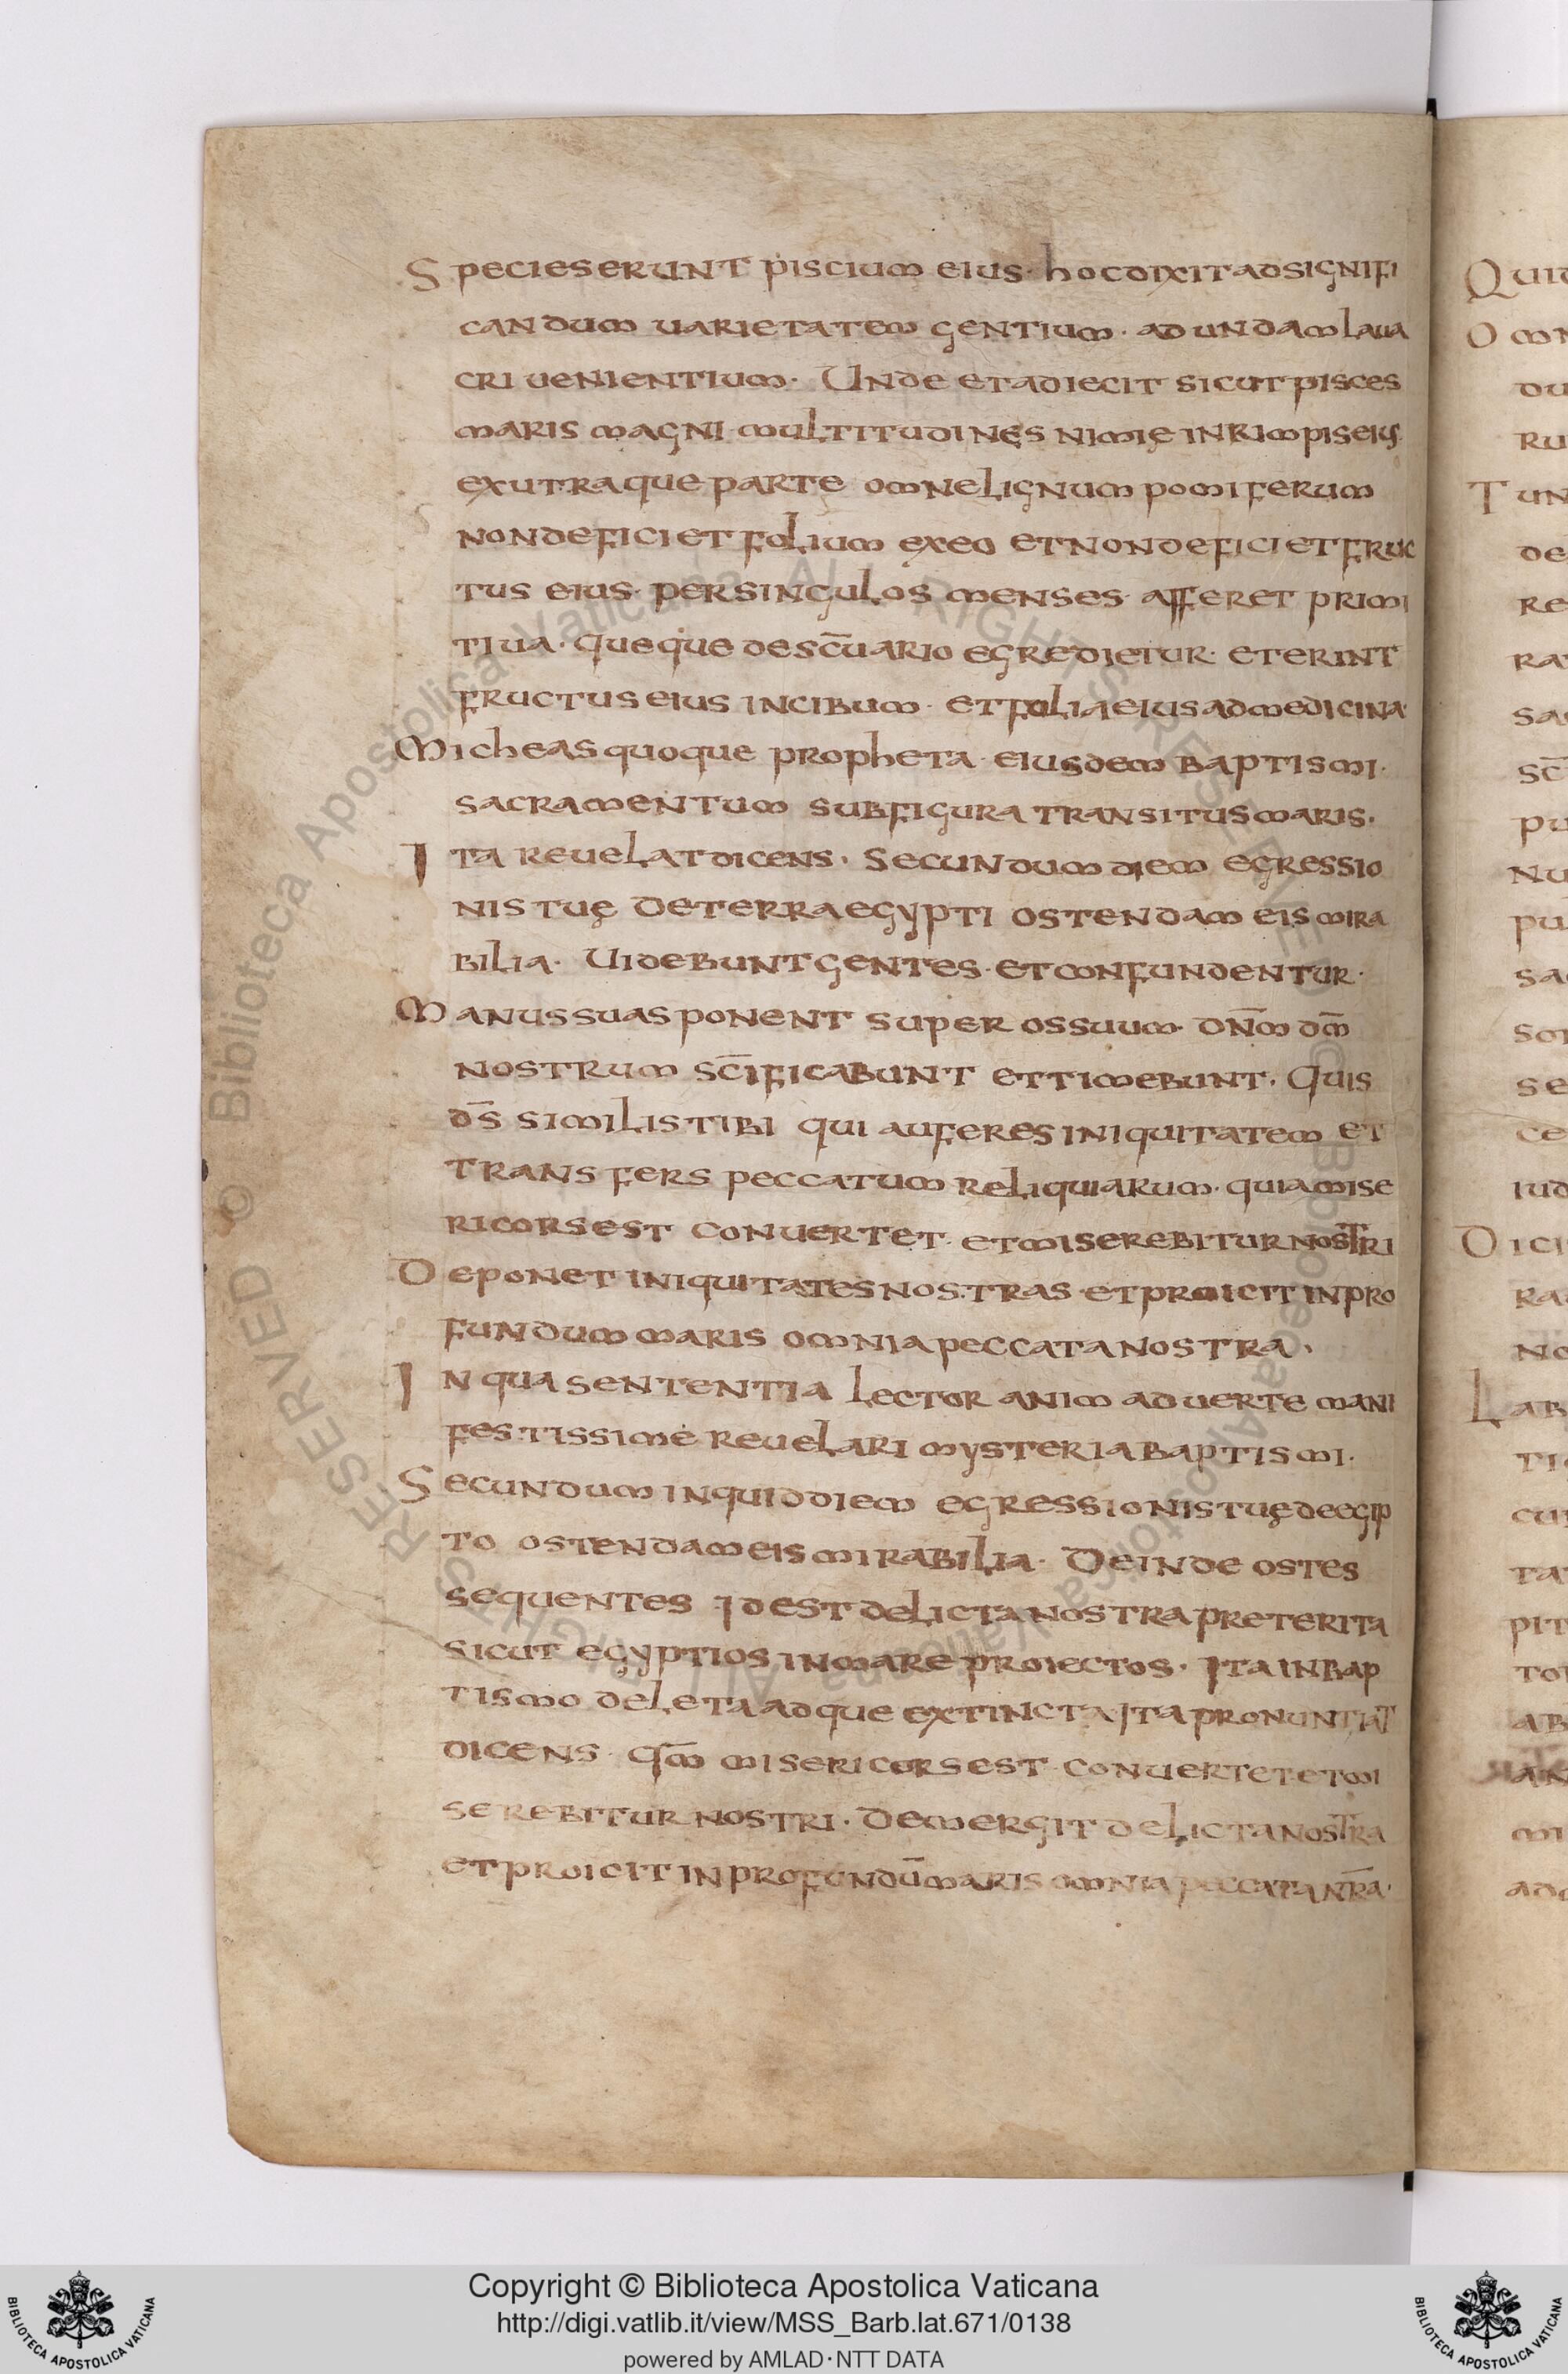 Species erunt piscium eius· hoc dixit ad signifi
candum uarietatem gentium· ad undam laua
cri uenientium· Unde et adiecit sicut pisces
maris magni multitudines nimię in rimpis eius
ex utraque parte omne lignum pomiferum
non deficiet folium ex eo et non deficiet fruc
tus eius· per singulos menses· afferet primi
tiua· que que de sc̅uario egredietur· et erint
fructus eius in cibum· et folia eius ad medicina
Micheas quoque propheta· eiusdem baptismi·
sacramentum sub figura transitus maris·
Ita reuelat dicens· Secundum diem egressio
nis tuę de terra egypti ostendam eis mira
bilia· Uidebunt gentes· et confundentur·
Manus suas ponent super os suum· dn̅m dm̅
nostrum sc̅ificabunt et timebunt· Quis
ds̅ similis tibi qui auferes iniquitatem et
transfers peccatum reliquiarum· quia mise
ricors est conuertet· et miserebitur nostri
Deponet iniquitates nostras· et proicit in pro
fundum maris omnia peccata nostra·
In qua sententia lector anim aduerte mani
festissime reuelari mysteria baptismi·
Secundum inquid diem egressionis tuę de egip
to ostendam eis mirabilia· Deinde ostes
sequentes id est delicta nostra preterita
sicut egyptios in mare proiectos· Ita in bap
tismo deleta adque extincta ita pronuntiat
dicens· qm̅ misericors est· conuertet et mi
serebitur nostri· Demergit delicta nostra
et proicit in profundū maris omnia peccata nr̅a·
Quid
Om
du
ru
Tun
de
re
ra
sa
sc̅
pu
nu
pu
sa
son
se
ce
iud
Dici
ra
no
Lab
tio
cu
ta
pit
to
ab
an
mi
ad
© Biblioteca Apostolica Vaticana ALL RIGHTS RESERVED © Biblioteca Apostolica Vaticana ALL RIGHTS RESERVED
BIBLIOTECA APOSTOLICA VATICANA
Copyright © Biblioteca Apostolica Vaticana
http://digi.vatlib.it/view/MSS_Barb.lat.671/0138
powered by AMLAD·NTT DATA
BIBLIOTECA APOSTOLICA VATICANA